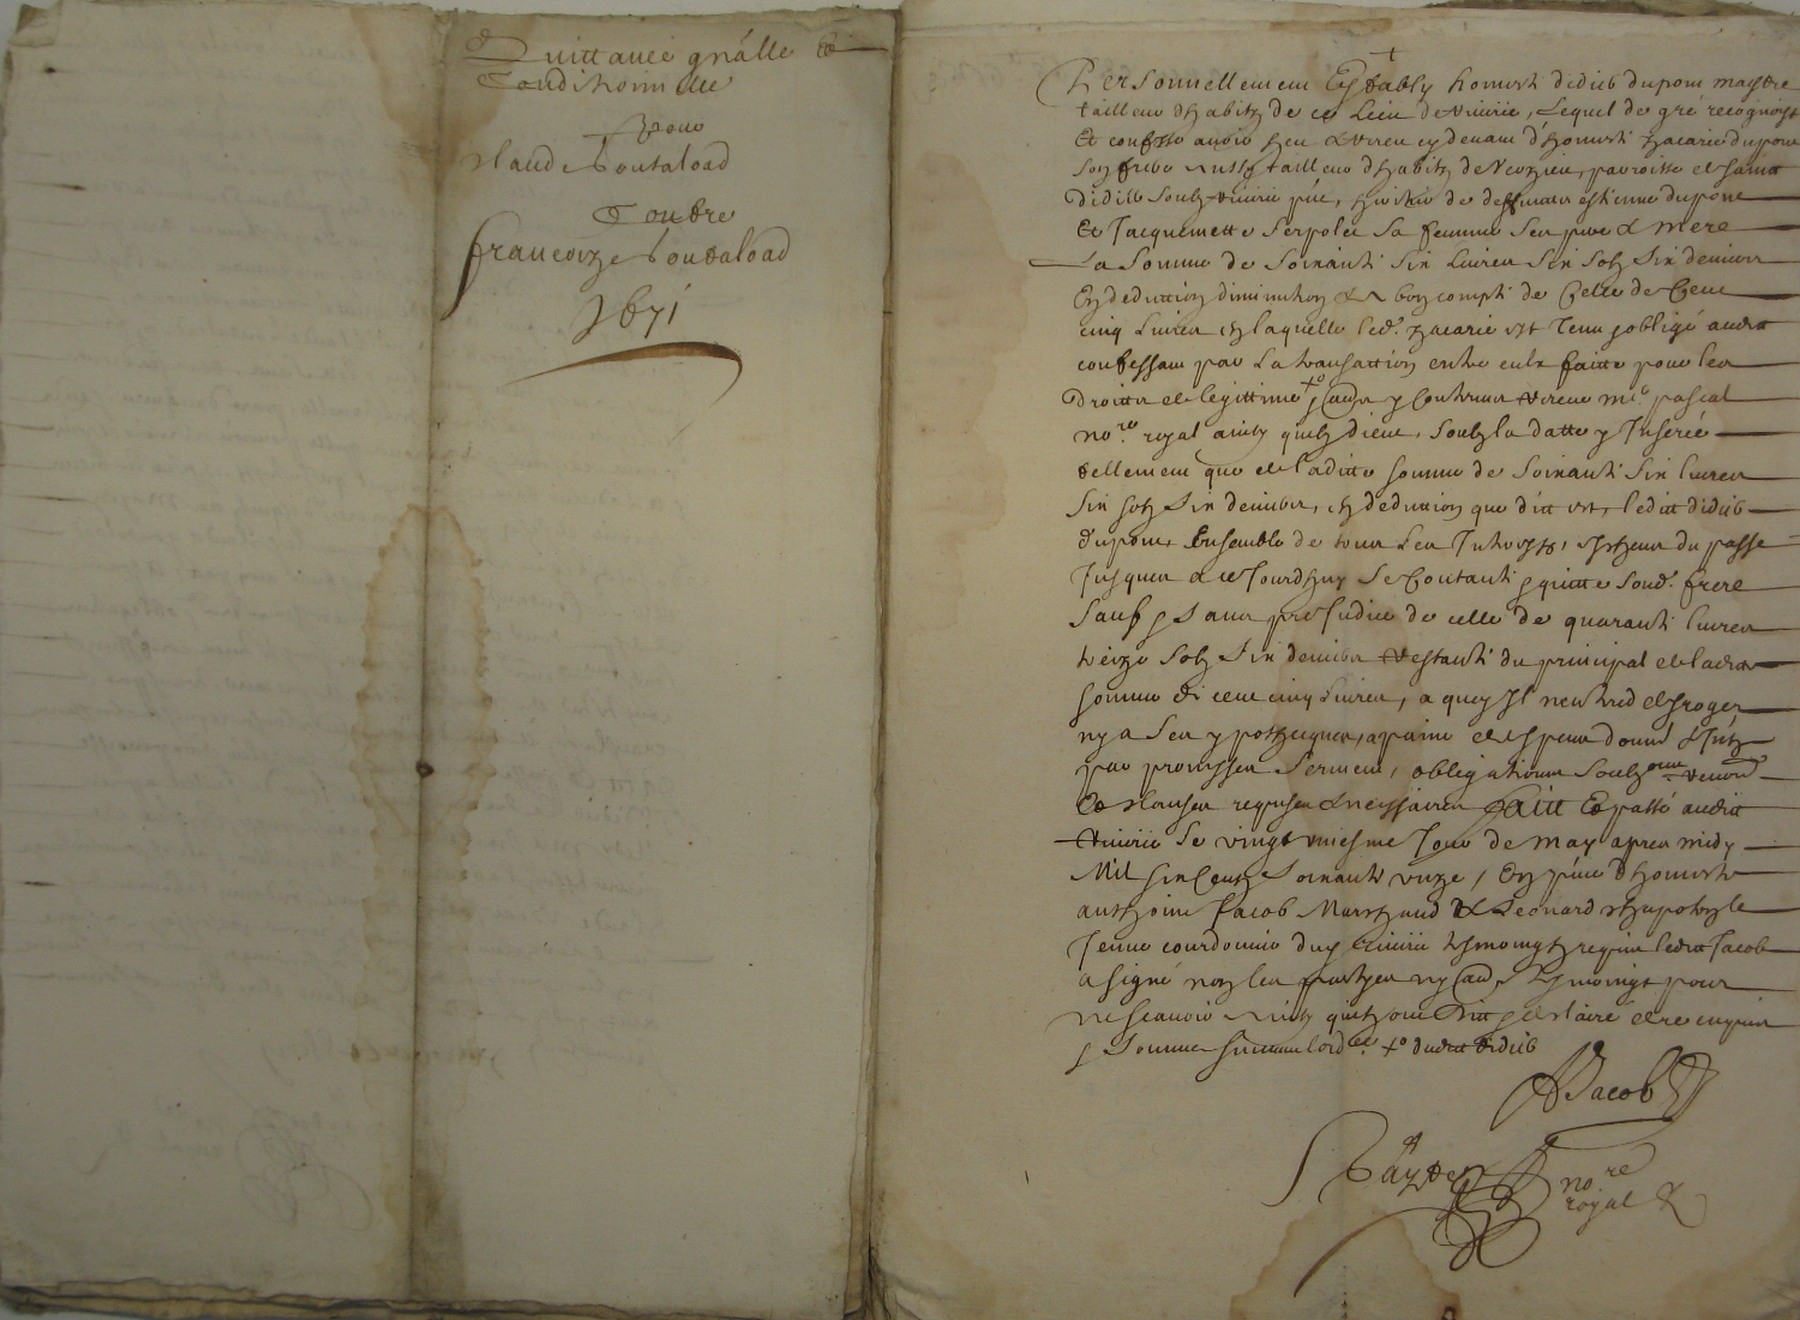 Quittance gnâlle &
Conditionnelle
Pour
Claude Boutaload
Contre
francoize Boutaload
1671
Personnellement Estably honneste didier dupont maystre
tailleur dhabitz de ce Lieu de Vinrie, Lequel de gré recognoist
Et confesse avoir heu & receu cy devant d'honneste Zacarie dupont
son frere aussy tailleur dhabitz de parroisse de saint
didier soubz pñt, heritier de deffuncts estienne dupont
Et Jacquemette Serpolet sa femme leur pere & mere
La somme de soixante six Livres six solz six deniers
En deduttion diminution & a bon compte de Celle de Cent
cinq Livres en laquelle led. zacarie est tenu & obligé audit
confessant par la transattion entre eulx faitte pour les
droitts de legittime +° & contenus receue me. pascal
nore. royal ainsy quilz dient, soubz la datte y Inserée
tellement que de laditte somme de soixante six livres
six solz six deniers, en deduttion que ditt est, ledit didier
dupont Ensemble de tous les Interestz, du passé
Jusques a ce Jourdhuy se Contante & quitte soud. frere
sauf & sans prejudice de celle de quarante livres
treize solz six deniers restante du principal de ladite
somme de cent cinq Livres, a quoy Il nentend desroger
ny a ses ypotheques, a peine de tous despens domd & Intz
par promesses serment, obligations soubz
Et clauses requises & necessaires faitt Et passé audit
le vingt uniesme Jour de may apres midy
Mil six Centz soixante unze, En pñce dhonneste
anthoine Jacob Marchand & Leonard
Jeune courdonnier dud. tesmoingz requis ledit Jacob
a signé non les parties ny tesmoingt pour
ne scavoir ainsy quilz ont ditt & declairé de ce enquis
& sommés suivant lord.ce. +° dudit didier
AJacob
nore
royal